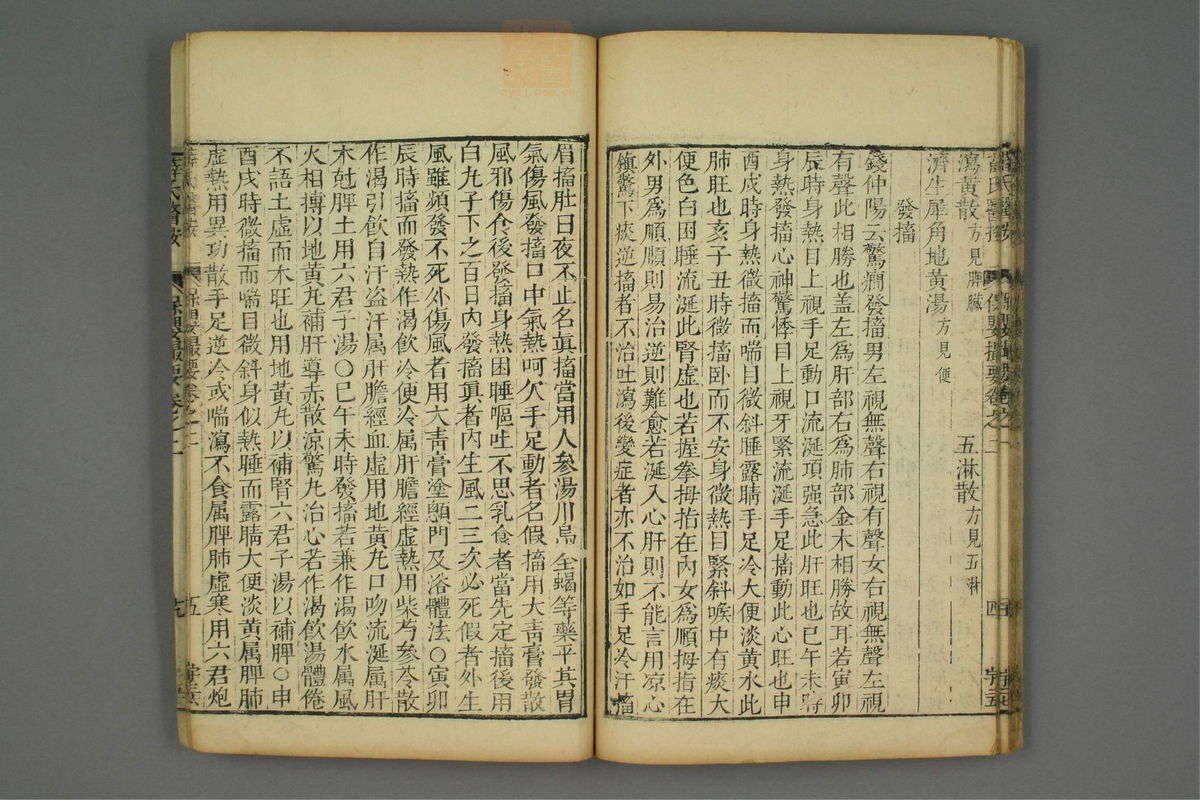 薛氏醫按 保嬰撮要卷之二 四
瀉黃散方見脾臟 五淋散方見五淋
濟生犀角地黃湯方見便
發搐
錢仲陽云驚癎發搐男左視無聲右視有聲女右視無聲左視
有聲此相勝也盖左爲肝部右爲肺部金木相勝故耳若寅卯
辰時身熱目上視手足動口流涎項强急此肝旺也巳午未時
身熱發搐心神驚悸目上視牙緊流涎手足搐動此心旺也申
酉戌時身熱微搐而喘目微斜睡露睛手足冷大便淡黃水此
肺旺也亥子丑時微搐卧而不安身微熱目緊斜喉中有痰大
便色白困睡流涎此腎虛也若握拳拇指在內女爲順拇指在
外男爲順順則易治逆則難愈若涎入心肝則不能言用凉心
鎮驚下痰逆搐者不治吐瀉後變症者亦不治如手足冷汗搐
眉搐肚日夜不止名眞搐當用人參湯川烏全蝎等藥平其胃
氣傷風發搐口中氣熱呵欠手足動者名假搐用大青膏發散
風邪傷食後發搐身熱困睡嘔吐不思乳食者當先定搐後用
白丸子下之百日內發搐眞者內生風二三次必死假者外生
風雖頻發不死外傷風者用大青膏塗顖門及浴體法〇寅卯
辰時搐而發熱作渴飲冷便冷属肝膽經虛熱用柴芍參苓散
作渴引飲自汗盗汗属肝膽經血虛用地黃丸口吻流涎属肝
木尅脾土用六君子湯〇巳午未時發搐若兼作渴飲水属風
火相搏以地黃丸補肝導赤散凉驚丸治心若作渴飲湯體倦
不語土虛而木旺也用地黃丸以補腎六君子湯以補脾〇申
酉戌時微搐而喘目微斜身似熱睡而露睛大便淡黃属脾肺
虛熱用異功散手足逆冷或喘瀉不食属脾肺虛寒用六君炮
薛氏醫按 保嬰撮要卷之二 五